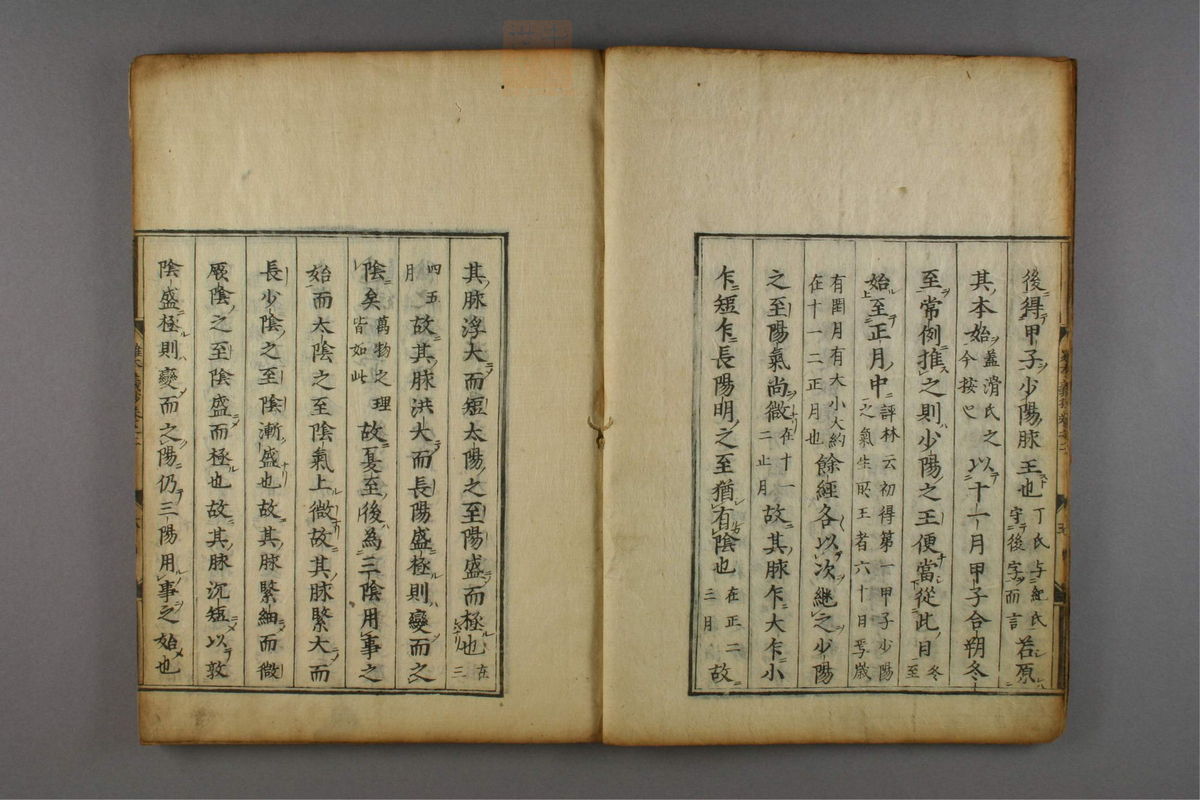 後得甲子少陽脉王也丁氏与紀氏守後字而言若原
其本始蓋滑氏之今按以十一月甲子合朔冬
至常例推之則少陽之王便當從此日冬至
始至正月中評林云初得第一甲子少陽之氣生旺王者六十日
有閏月有大小大約在十一二正月也餘經各以次継之少陽
之至陽氣尚微在十一二正月故其脉乍大乍小
乍短乍長陽明之至猶有陰也在正二三月故
其脉浮大而短太陽之至陽盛而極也在三
四五月故其脉洪大而長陽盛極則變而之
陰矣萬物之理皆如此故夏至後為三陰用事之
始而太陰之至陰氣上微故其脉緊大而
長少陰之至陰漸盛也故其脉緊細而微
厥陰之至陰盛而極也故其脉沉短以敦
陰盛極則變而之陽仍三陽用事之始也